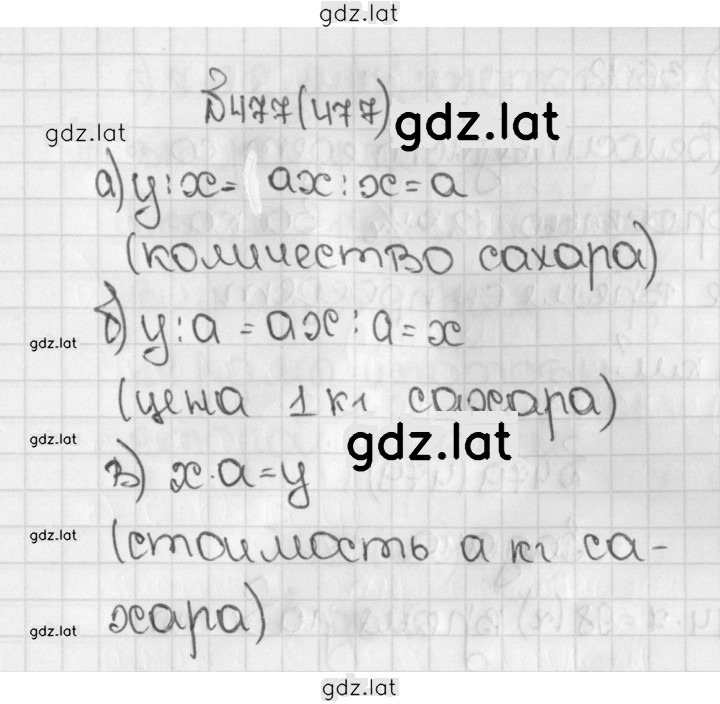 gdz.lat
№477(477)
gdz.lat
gdz.lat
а) у:х= ах:х=а
(количество сахара)
б) у:а=ах:а=х
gdz.lat
(цена 1 кг сахара)
gdz.lat
gdz.lat
в) х·а=у
(стоимость а кг са-
gdz.lat
хара)
gdz.lat
gdz.lat